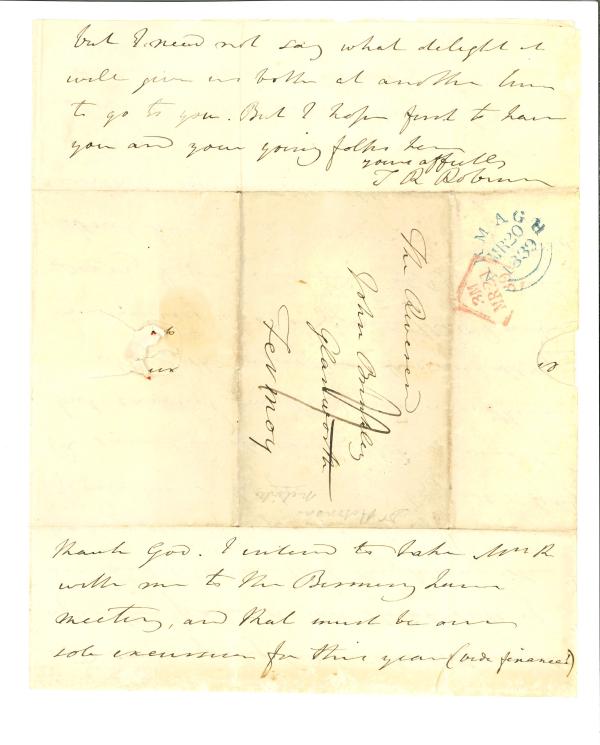 but I need not say what delight it
will give us both at another time
to go to you. But I hope first to have
you and your young folks here
yours affectly
T R Robinson
ARMAGH
MR 20
1839
3M
MR 21
The Reverend
John Brinkley
Glanworth
Fermoy
Dr Robinson
thank God. I intend to take Mrs R
with me to the Birmingham
meeting, and that must be our
sole excursion for this year (vide finances)